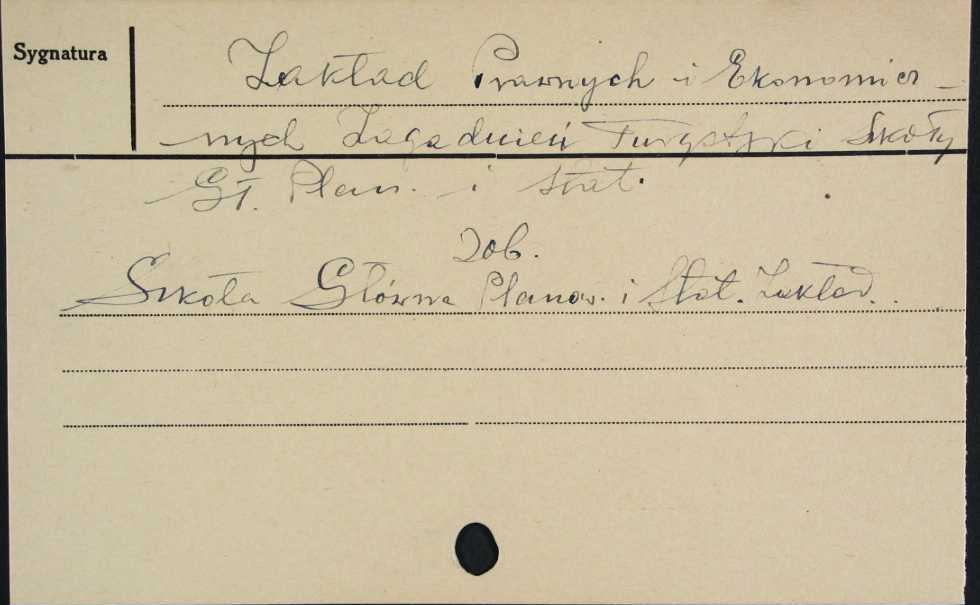 Sygnatura
Zakład Prawnych i Ekonomicz-
nych Zagadnień Turystyki Szkoły
Gł. Plan. i Stat.
Zob.
Szkoła Główna Planow. i Stat. Zakład..